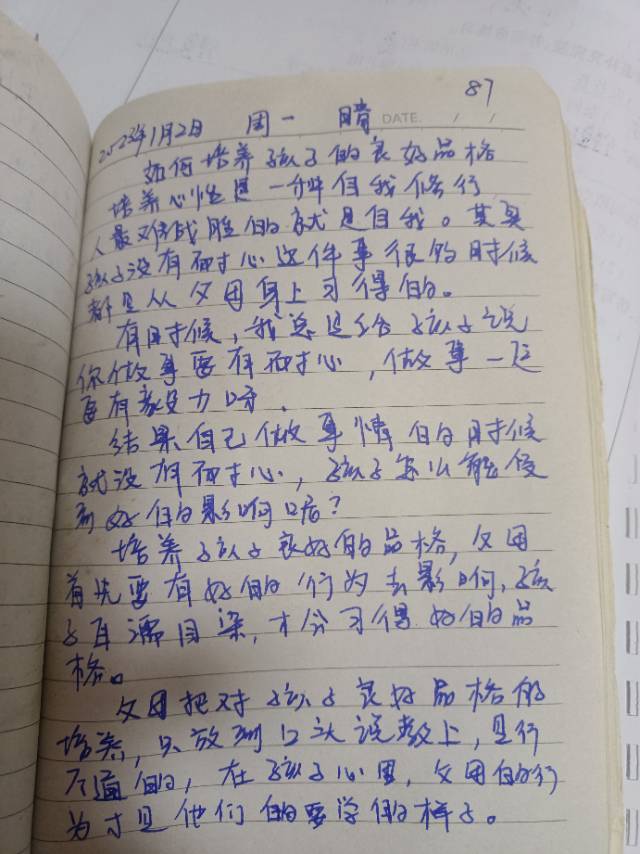 87
2023年1月2日 周一 晴 DATE. / /
如何培养孩子的良好品格
培养心性是一种自我修行
人最难战胜的就是自我。其实
孩子没有耐心这件事很多时候
都是从父母身上习得的。
有时候,我总是给孩子说
你做事要有耐心,做事一定
要有毅力呀.
结果自己做事情的时候
就没有耐心,孩子怎么能受
到好的影响呢?
培养孩子良好的品格,父母
首先要有好的行为去影响,孩
子耳濡目染,才会习得好的品
格。
父母把对孩子良好品格的
培养,只放到口头说教上,是行
不通的,在孩子心里,父母的行
为才是他们的要学的样子。